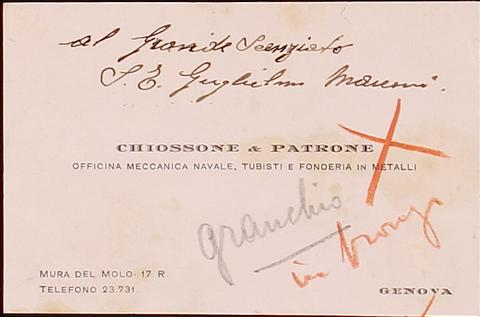 al Grande Scenziato
S. E. Guglielmo Marconi.
CHIOSSONE & PATRONE
OFFICINA MECCANICA NAVALE, TUBISTI E FONDERIA IN METALLI
granchio
in bronzo
MURA DEL MOLO. 17 R.
TELEFONO 23.731
GENOVA